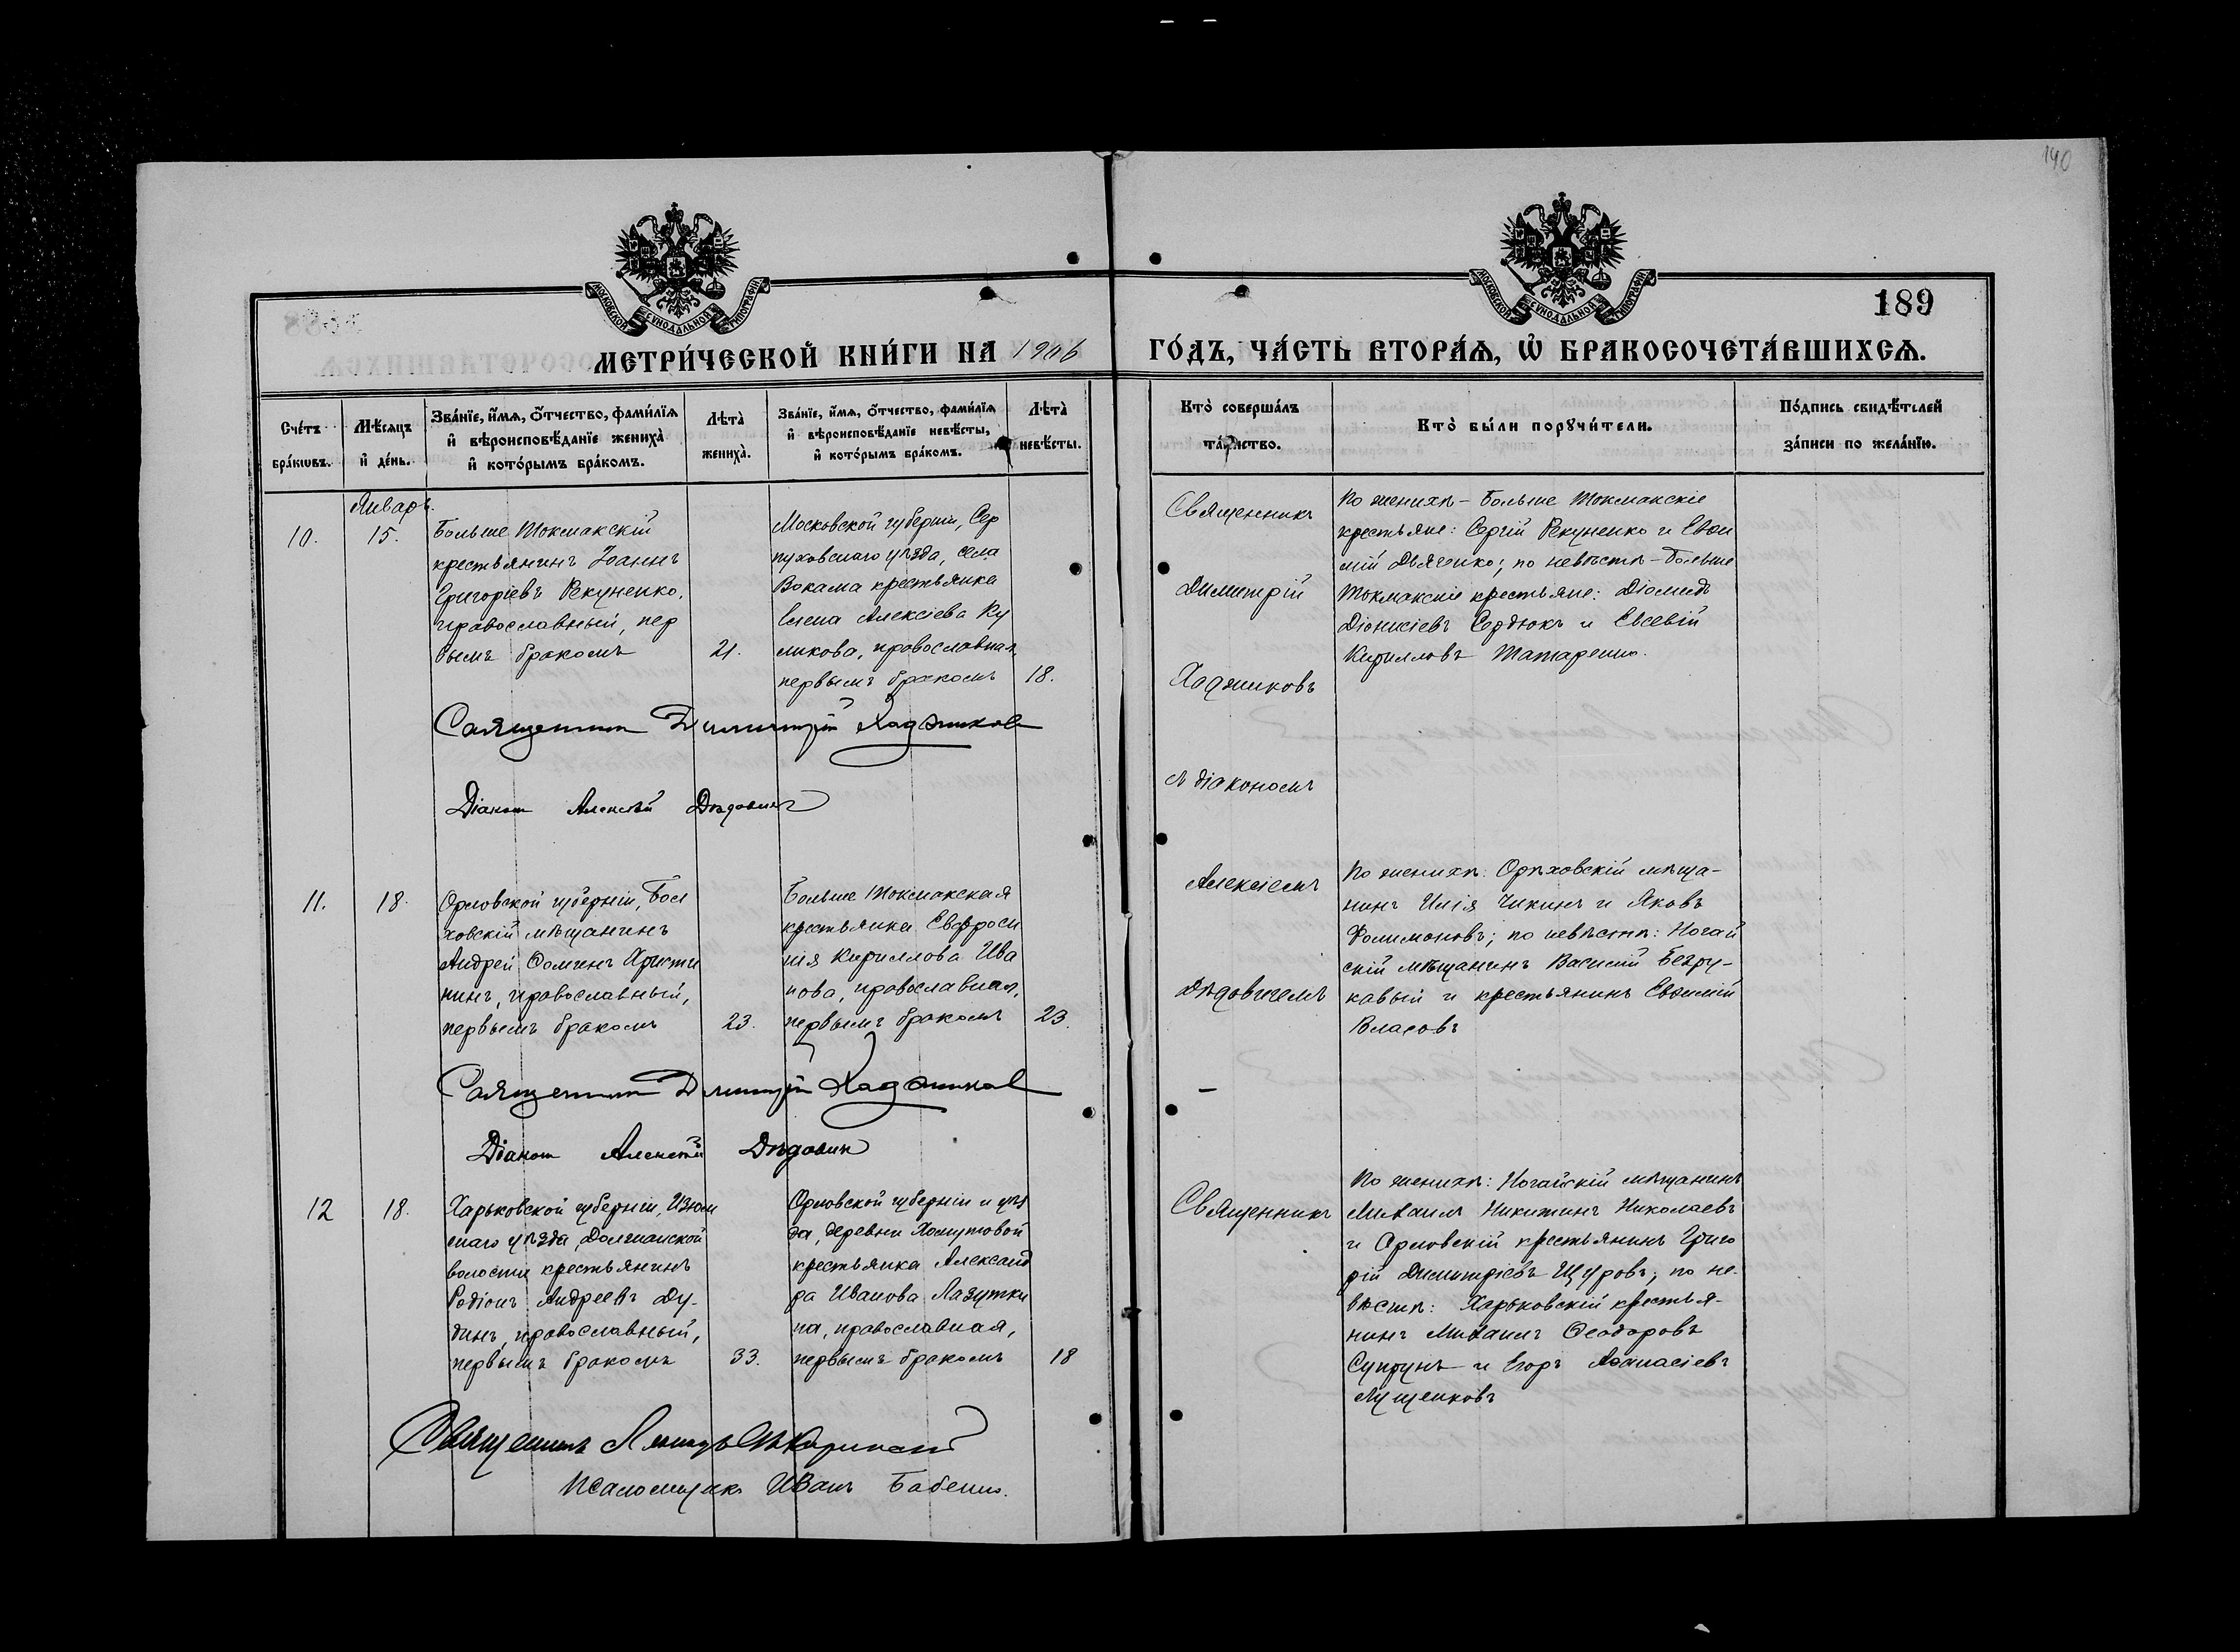 190
МОСКОВСКОЙ СѴНОДАЛЬНОЙ ТИПОГРАФІИ
МОСКОВСКОЙ СѴНОДАЛЬНОЙ ТИПОГРАФІИ
189
МЕТРИ́ЧЕСКОЙ КНИ́ГИ НА 1906 ГО́ДЪ, ЧА́СТЬ ВТОРА́Ѧ, Ѡ҆ БРАКОСОЧЕТА́ВШИХСѦ.
Сче́тъ бра́кѡвъ.
Мѣ́сѧцъ и҆ де́нь.
Зва́нїе, и҆́мѧ, ѻ҆́тчество, фами́лїѧ
и҆ вѣроисповѣ́данїе жениха̀
и҆ кото́рымъ бра́комъ.
Лѣта̀ жениха̀.
Зва́нїе, и҆́мѧ, ѻ҆́тчество, фами́лїѧ
и҆ вѣроисповѣ́данїе невѣ́сты,
и҆ кото́рымъ бра́комъ.
Лѣта̀ невѣ́сты.
Кто̀ соверша́лъ та́инство.
Кто̀ бы́ли порꙋчи́тели.
По́дпись свидѣ́телей
за́писи по жела́нїю.
Январь.
10.
15.
Больше Токмакскій
крестьянинъ Іоаннъ
Григоріевъ Рекуненко,
православный, пер
вымъ бракомъ
21.
Московской губерніи, Сер
пуховскаго уѣзда, села
крестьянка
Елена Алексіева Ку
ликова, православная,
первымъ бракомъ
18.
Священникъ
Димитрій
Хаджиковъ
съ діакономъ
Алексіемъ
Дѣдовичемъ
По женихѣ – Больше Токмакскіе
крестьяне: Сергій Рекуненко и Евѳи
мій Дьяченко; по невѣстѣ – Больше
Токмакскіе крестьяне: Діомидъ
Діонисіевъ Сердюкъ и Евсевій
Кирилловъ Татаренко.
Священникъ Димитрій Хаджиковъ
Діаконъ Алексѣй Дѣдовичъ
11.
18.
Орловской губерніи, Бол
ховскій мѣщанинъ
Андрей Ѳоминъ
православный,
первымъ бракомъ
23.
Больше Токмакская
крестьянка Евфроси
нія Кириллова Ива
нова, православная,
первымъ бракомъ
23.
По женихѣ: Орѣховскій мѣща-
нинъ Илія Чикинъ и Яковъ
Филимоновъ; по невѣстѣ: Ногай
скій мѣщанинъ Василій Безру-
кавый и крестьянинъ Евѳимій
Власовъ
Священникъ Димитрій Хаджиковъ
Діаконъ Алексѣй Дѣдовичъ
12
18.
Харьковской губерніи, Изюм
скаго уѣзда,
волости крестьянинъ
Родіонъ Андреевъ Ду-
динъ, православный,
первымъ бракомъ
33.
Орловской губерніи и уѣз
да, деревни Хомутовой
крестьянка Александ
ра Иванова Лазутки
на, православная,
первымъ бракомъ
18
Священникъ
По женихѣ: Ногайскій мѣщанинъ
Михаилъ Никитинъ Николаевъ
и Орловскій крестьянинъ Григо
рій Димитріевъ Щуровъ; по не-
вѣстѣ: Харьковскій крестья-
нинъ Михаилъ Ѳеодоровъ
Супрунъ и Егоръ Аѳанасіевъ
Лущенковъ
Священникъ
Псаломщикъ Иванъ Бабенко.